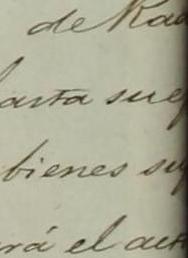 de Ra
asta su
bienes su
rá el act